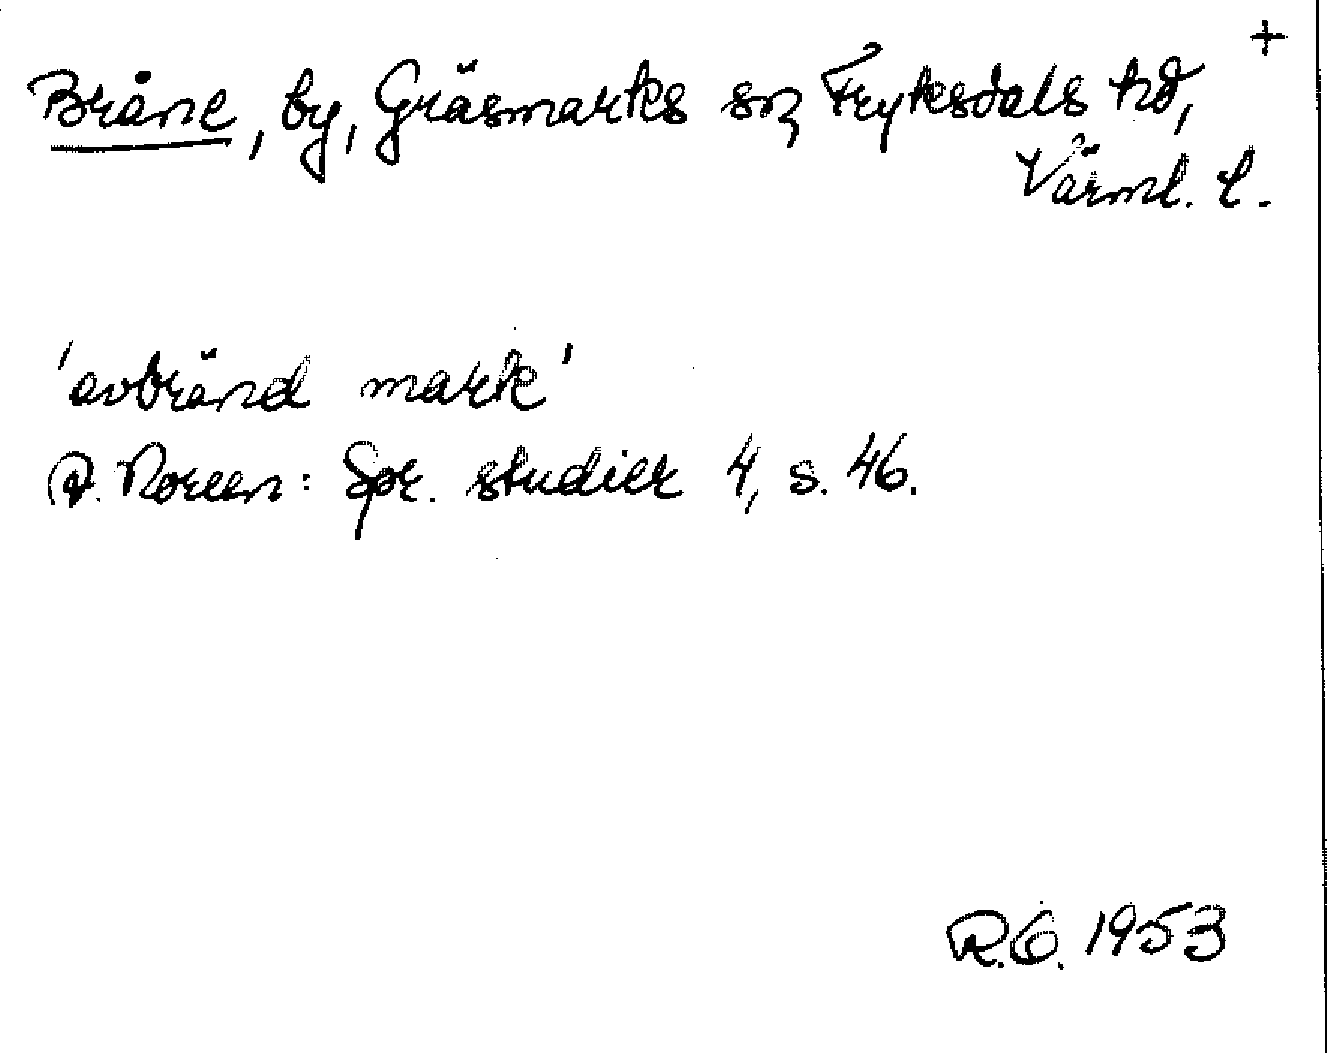 +
Bråne, by, Gräsmarks sn, Fryksdals hd,
Värml. l.
'avbränd mark'
A. Noreen: Spr. studier 4, s. 46.
R.G. 1953